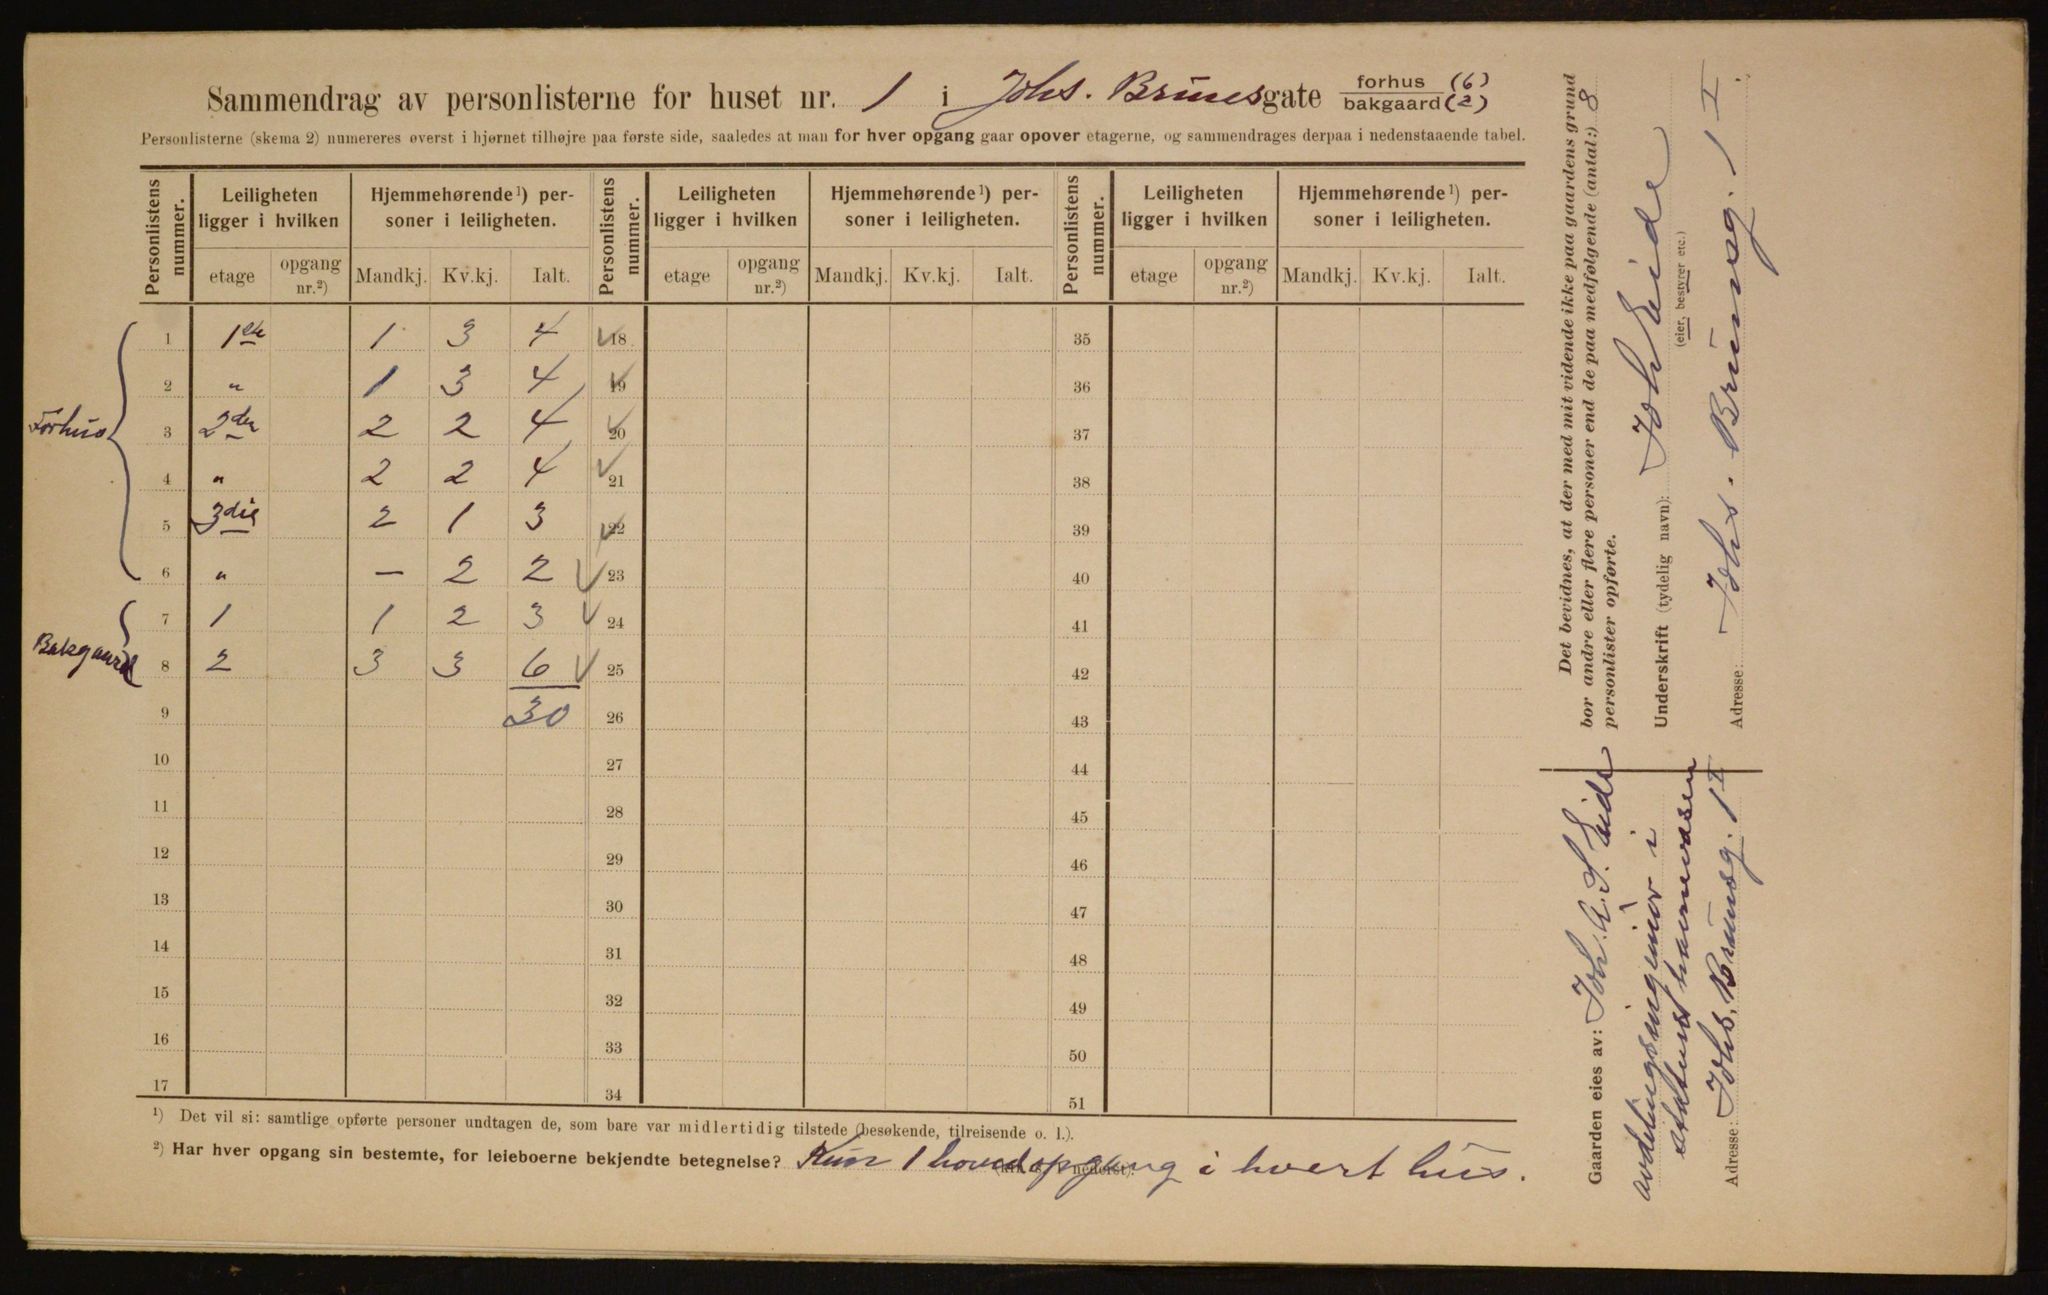 Sammendrag av personlisterne for huset nr. 1 i Johs. Brunsgate forhus (6) bakgaard (2)
Personlisterne (skema 2) numereres øverst i hjørnet tilhøjre paa første side, saaledes at man for hver opgang gaar opover etagerne, og sammendrages derpaa i nedenstaaende tabel.
Personlistens nummer. Leiligheten ligger i hvilken Hjemmehørende¹) personer i leiligheten. Personlistens nummer. Leiligheten ligger i hvilken Hjemmehørende¹) personer i leiligheten. Personlistens nummer. Leiligheten ligger i hvilken Hjemmehørende¹) personer i leiligheten.
etage opgang nr.²) Mandkj. Kv.kj. Ialt. etage opgang nr.²) Mandkj. Kv.kj. Ialt. etage opgang nr.²) Mandkj. Kv.kj. Ialt.
Forhus
1 1ste 1 3 4 18 35
2 " 1 3 4 19 36
3 2den 2 2 4 20 37
4 " 2 2 4 21 38
5 3die 2 1 3 22 39
6 " – 2 2 23 40
Bakgaard
7 1 1 2 3 24 41
8 2 3 3 6 25 42
9 30 26 43
10 27 44
11 28 45
12 29 46
13 30 47
14 31 48
15 32 49
16 33 50
17 34 51
¹) Det vil si: samtlige opførte personer undtagen de, som bare var midlertidig tilstede (besøkende, tilreisende o. l.).
²) Har hver opgang sin bestemte, for leieboerne bekjendte betegnelse? Kun 1 hovedopgang i hvert hus.
Det bevidnes, at der med mit vidende ikke paa gaardens grund
bor andre eller flere personer end de paa medfølgende (antal:) 8
personlister opførte.
Underskrift (tydelig navn): Joh Eide
(eier, bestyrer etc.)
Adresse: Johs. Brunsg. 1 I.
Gaarden eies av: Joh. A. S. Eide
avdelingsingeniør i
statens havnevæsen
Adresse: Johs. Brunsg. 1 I